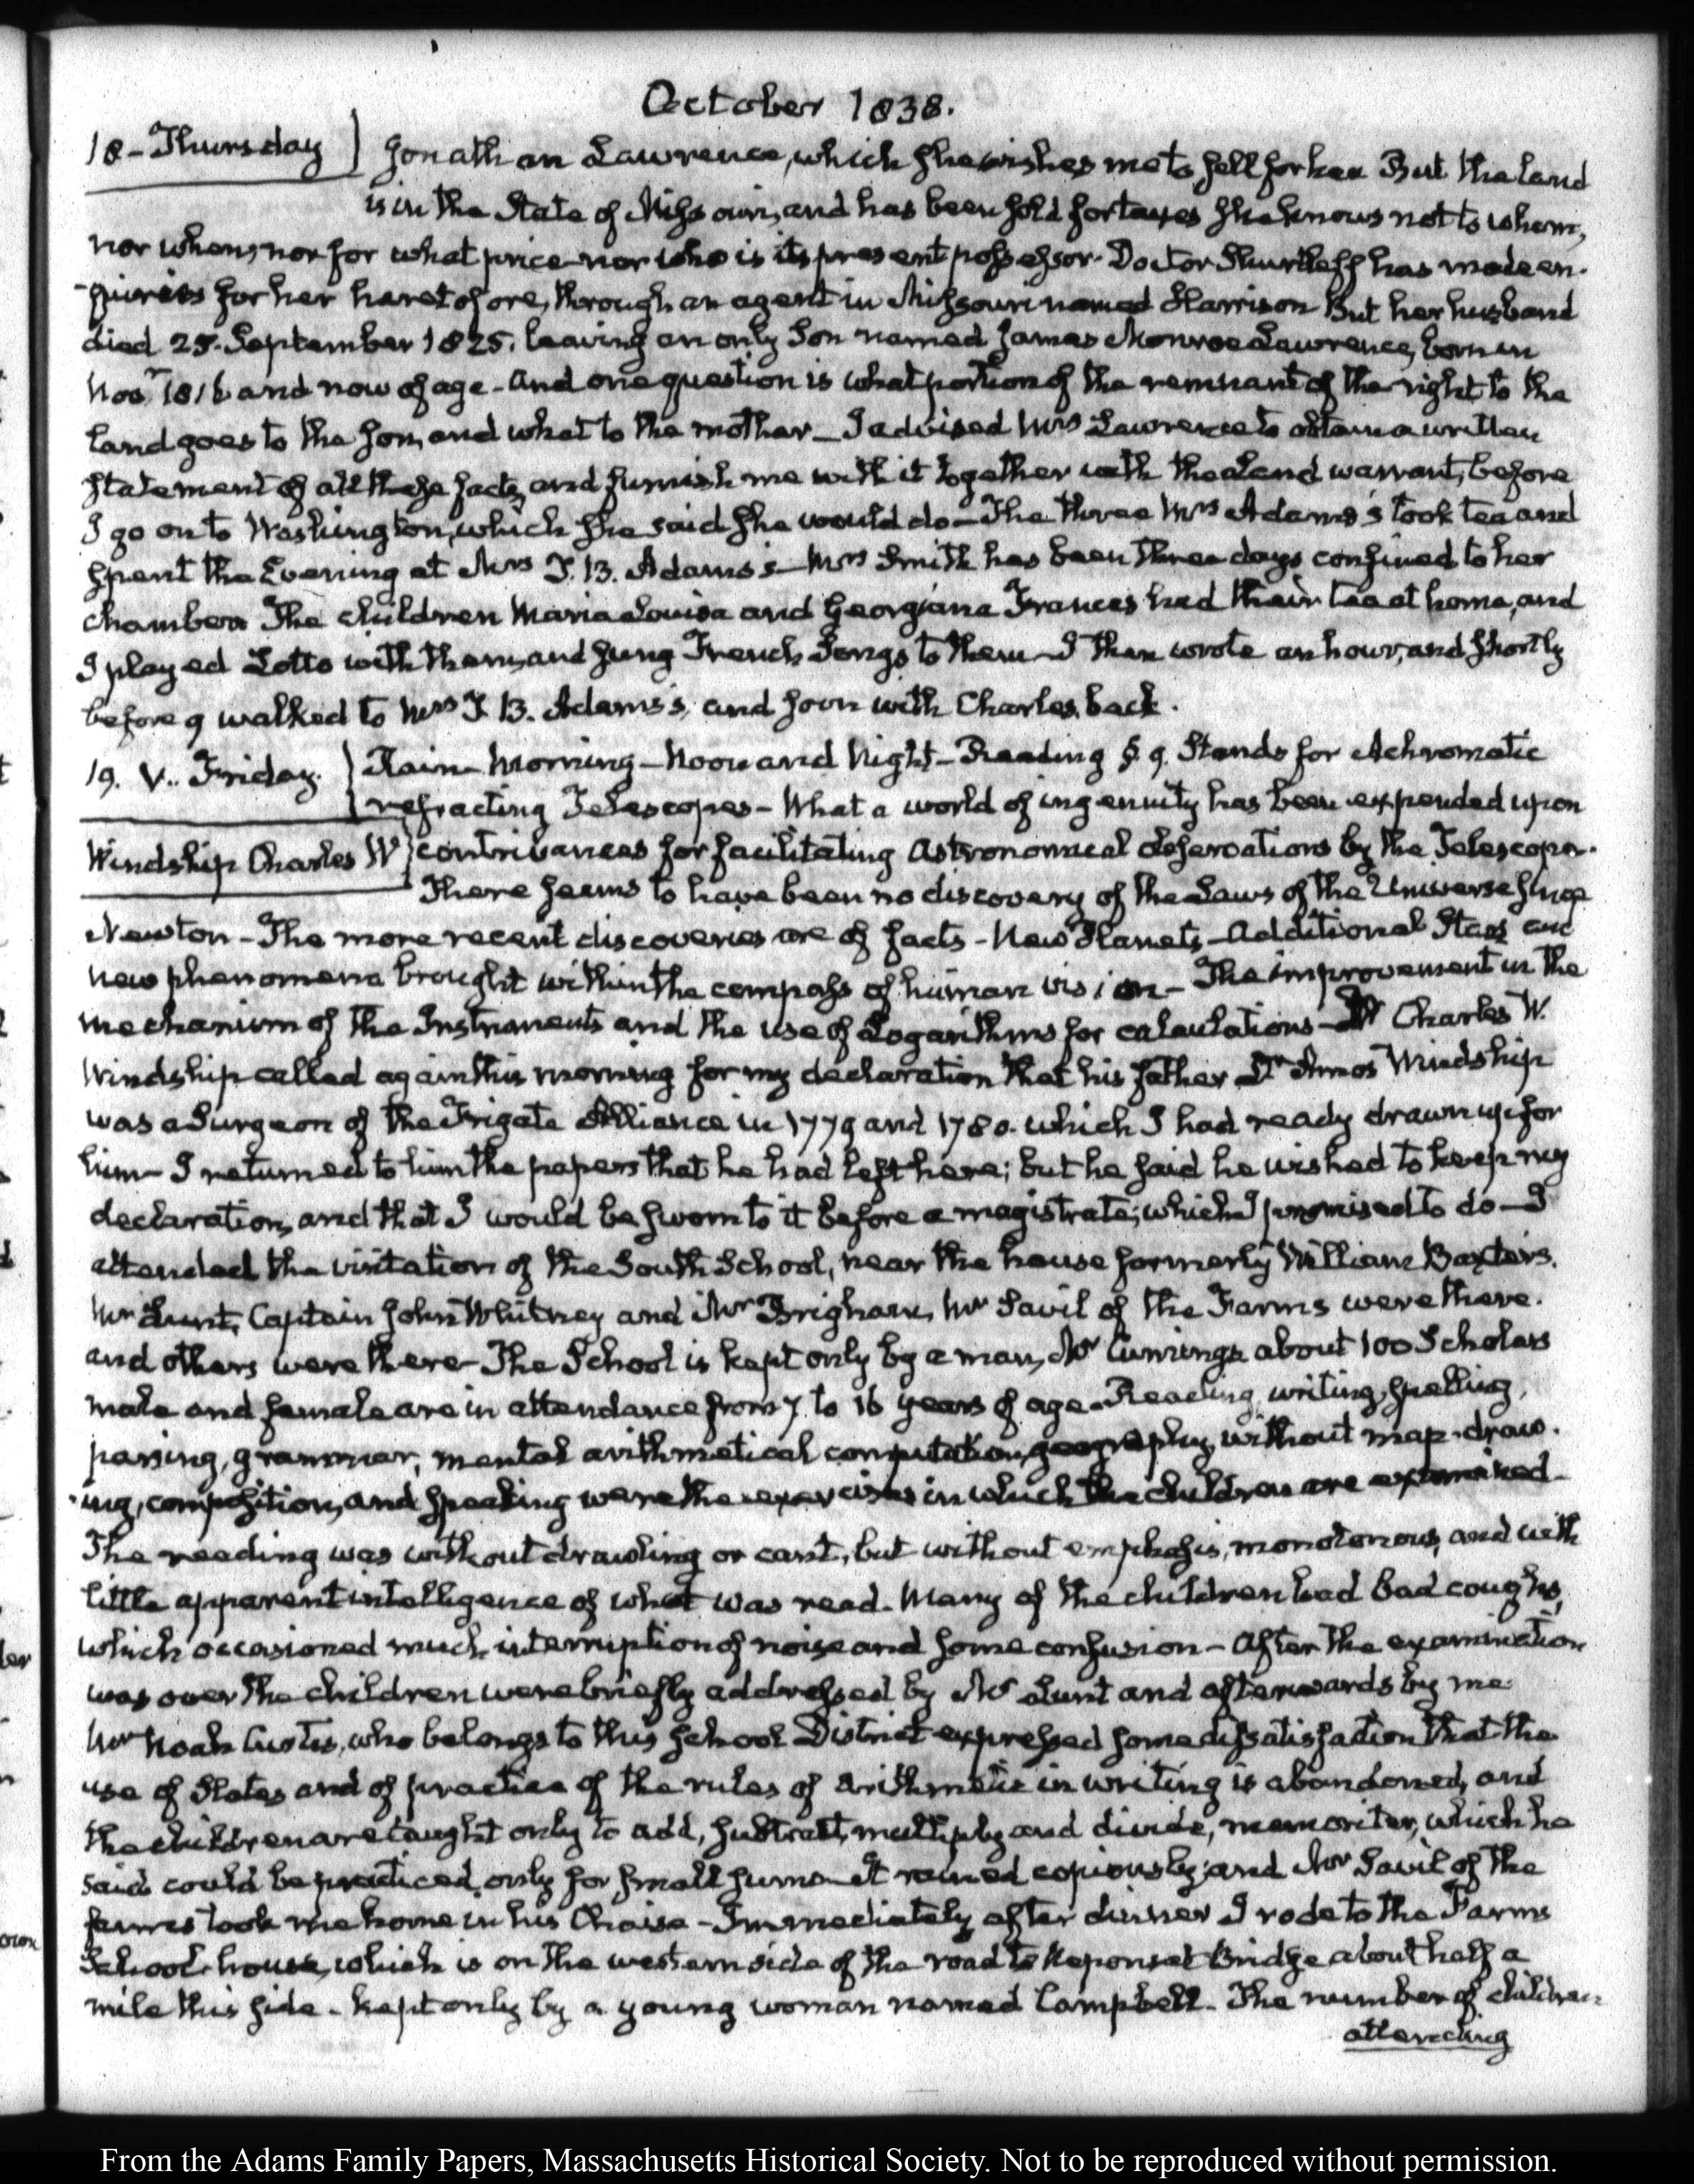 October 1838.
18 - Thursday
Jonathan Lawrence, which she wishes me to sell for her But the land
is in the State of Missouri, and has been sold for taxes she knows not to whom,
nor when, nor for what price nor who is its present possessor. Doctor Shurtleff has made en-
-quiries for her heretofore, through an agent in Missouri named Harrison But her husband
died 25. September 1825. leaving an only Son named James Monroe Lawrence, born in
Novr. 1816 and now of age - and one question is what portion of the remnant of the right to the
land goes to the son, and what to the mother - I advised Mrs Lawrence to obtain a written
statement of all these facts, and furnish me with it together with the Land warrant, before
I go on to Washington, which she said she would do - The three Mrs Adams's took tea and
spent the Evening at Mrs T. B. Adams's - Mrs Smith has been three days confined to her
chamber. The children Maria Louisa and Georgiana Frances had their tea at home, and
I played Lotto with them, and sung French Songs to them - I then wrote an hour, and shortly
before 9 walked to Mrs T. B. Adams's, and soon with Charles, back.
19. V.. Friday.
Rain - Morning - Noon and Night - Reading § 9. Stands for Achromatic
refracting Telescopes - What a world of ingenuity has been expended upon
Windship Charles W
contrivances for facilitating astronomical observations by the Telescope.
There seems to have been no discovery of the Laws of the Universe since
Newton - The more recent discoveries are of facts - New Planets - Additional Stars and
new phenomena brought within the compass of human vision - The improvement in the
mechanism of the Instruments and the use of Logarithms for calculations - Dr Charles W.
Windship called again this morning for my declaration that his father Dr Amos Windship
was a Surgeon of the Frigate Alliance in 1779 and 1780. which I had ready drawn up for
him - I returned to him the papers that he had left here; but he said he wished to keep my
declaration, and that I would be sworn to it before a magistrate; which I promised to do - I
attended the visitation of the South School, near the house formerly William Baxter's.
Mr Lunt, Captain John Whitney and Mr Brigham, Mr Savil of the Farms were there.
and others were there - The School is kept only by a man, Mr Cumings about 100 Scholars
male and female are in attendance from 7. to 16 years of age. Reading, writing, spelling,
parsing, grammar, mental arithmetical computation, geography, without map-draw-
-ing, composition, and speaking were the exercises in which the children are examined -
The reading was without drawling or cant, but without emphasis, monotonous, and with
little apparent intelligence of what was read. Many of the children had bad coughs,
which occasioned much interruption of noise and some confusion - After the examination
was over the children were briefly addressed by Mr Lunt and afterwards by me
Mr Noah Curtis, who belongs to this school District expressed some dissatisfaction that the
use of Slates and of practice of the rules of Arithmetic in writing is abandoned, and
the children are taught only to add, subtract, multiply and divide, memoriter, which he
said could be practiced only for small sums - It rained copiously; and Mr Savil of the
farms took me home in his Chaise - Immediately after dinner I rode to the Farms
School-house, which is on the western side of the road to Neponset Bridge about half a
mile this side - kept only by a young woman named Campbell - The number of children
attending
From the Adams Family Papers, Massachusetts Historical Society. Not to be reproduced without permission.